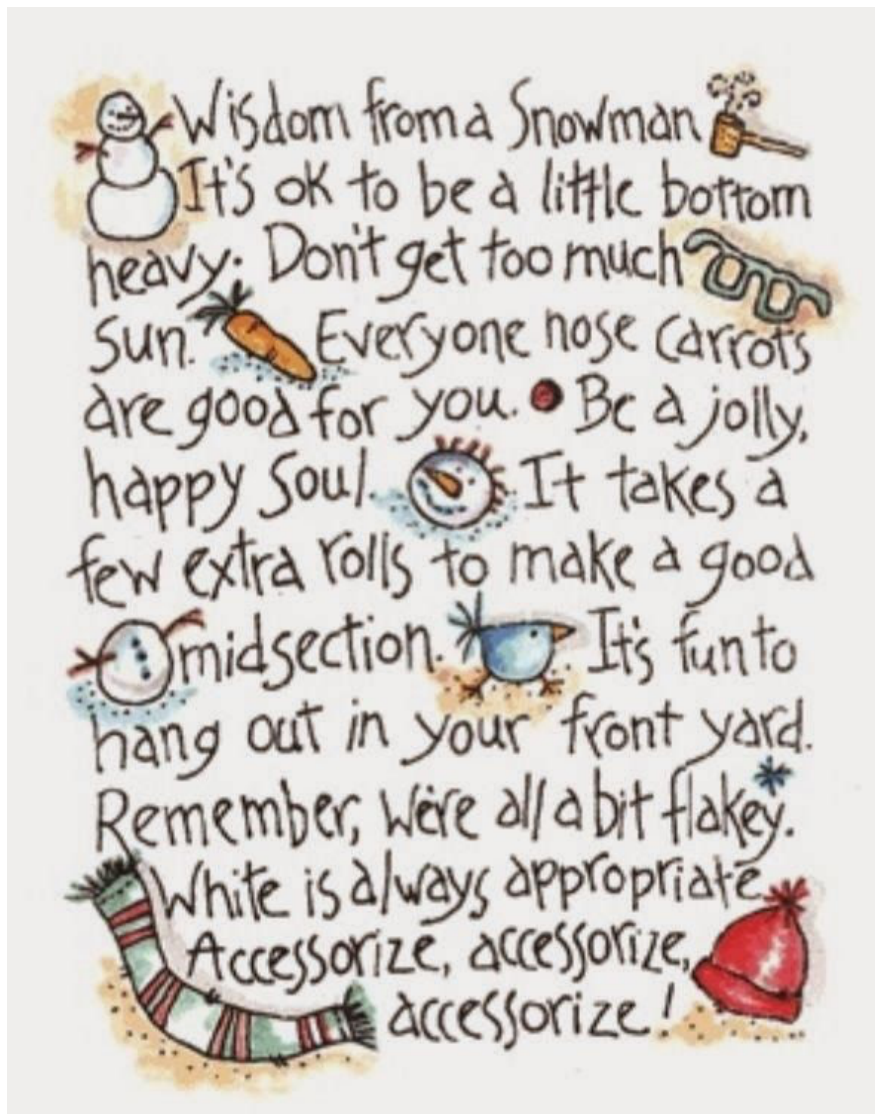 Wisdom from a Snowman
It's OK to be a little bottom
heavy. Don't get too much
Sun. Everyone nose carrots
are good for you. Be a jolly,
happy Soul. It takes a
few extra rolls to make a good
midsection. It's fun to
hang out in your front yard.
Remember, We're all a bit flakey.
White is always appropriate.
Accessorize, accessorize,
accessorize!